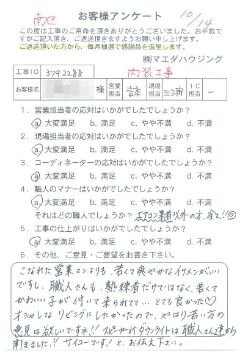 南区
お客様アンケート
10/14
この度は工事のご用命を頂きありがとうございました。お手数で
すがご記入頂き、ご返送頂きますようお願い申し上げます。
ご返送頂いた方から、毎月抽選で感謝品を進呈します。
㈱マエダハウジング
工事ID 3792288 内装工事
お客様名 様 営業担当 現場担当 三浦 IC担当 ー
1. 営業担当者の応対はいかがでしたでしょうか?
a.大変満足 b.満足 c.やや不満 d.不満
2. 現場担当者の応対はいかがでしたでしょうか?
a.大変満足 b.満足 c.やや不満 d.不満
3. コーディネーターの応対はいかがでしたでしょうか?
a.大変満足 b.満足 c.やや不満 d.不満
4. 職人のマナーはいかがでしたでしょうか?
a.大変満足 b.満足 c.やや不満 d.不満
それはどの職人でしょうか?
5. 工事の仕上がりはいかがでしたでしょうか?
a.大変満足 b.満足 c.やや不満 d.不満
6. その他、ご意見・ご要望をお書き下さい。
こなれた営業マンよりも、若くて爽やかなイケメンがいい
ですし、職人さんも、熟練者だけではなく、若くて
かわいい子が付いて来られてて…とても良かった♡
オシャレなリビングにしたかったので、やはり若い方の
意見は欲しいですネ!!スピーカー付ダウンライトは職人さん達から
聞きました!!サイコーです!とお伝え下さい。